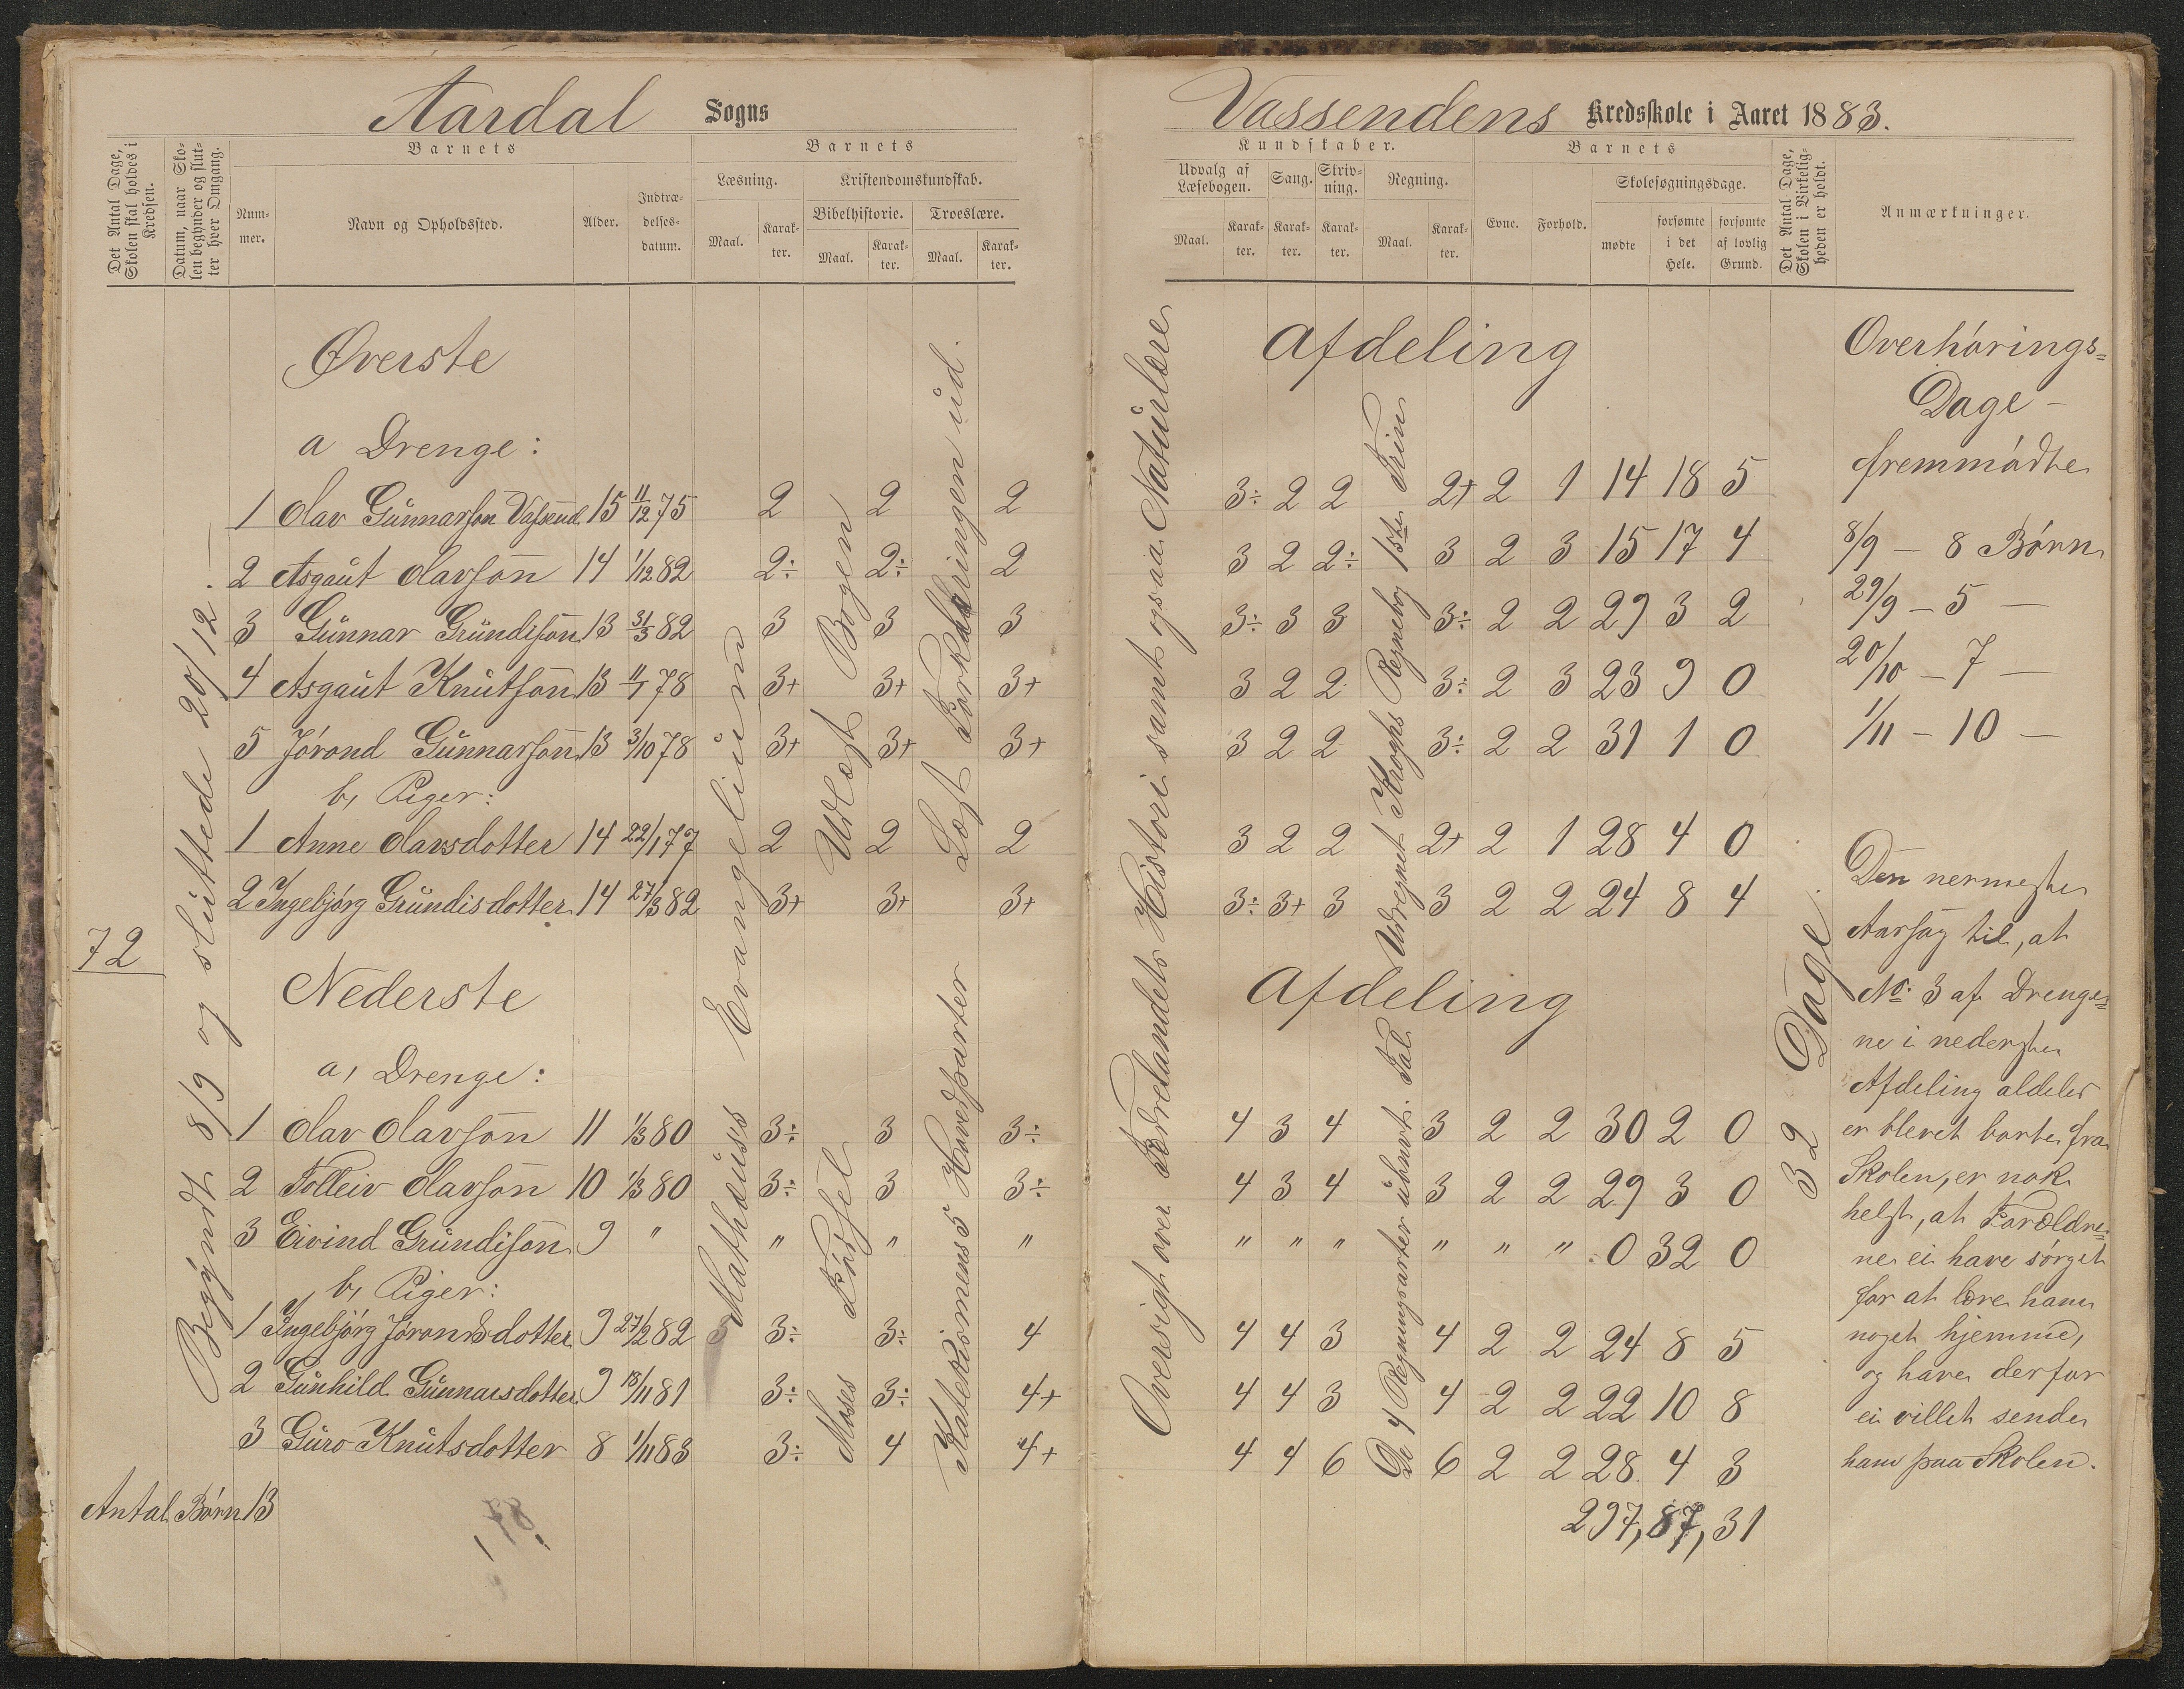 Aardal Sogns
Det Antal Dage, Skolen skal holdes i Kredsen.
Datum, naar Skolen begynder og slutter hver Omgang.
Barnets
Nummer.
Navn og Opholdssted.
Alder.
Indtrædelsesdatum.
Barnets
Læsning.
Kristendomskundskab.
Bibelhistorie. Troeslære.
Maal. Karakter. Maal. Karakter. Maal. Karakter.
Øverste
a Drenge:
1 Olav Gunnarson Vassend 15 11/12 75 2 2 2
2 Asgaut Olavson 14 1/12 82 2÷ 2÷ 2
3 Gunnar Grundison 13 31/3 82 3 3 3
4 Asgaut Knutson 13 11/1 78 3+ 3+ 3+
5 Jórond Gunnarson 13 3/10 78 3+ 3+ 3+
b, Piger:
1 Anne Olavsdotter 14 22/1 77 2 2 2
2 Ingebjórg Grundisdotter 14 27/3 82 3+ 3+ 3+
72
Nederste
a, Drenge:
1 Olav Olavson 11 1/3 80 3÷ 3 3÷
2 Folleiv Olavson 10 1/3 80 3÷ 3 3÷
3 Eivind Grundison 9 " " " "
b, Piger:
1 Ingebjórg Jórondsdotter 9 27/2 82 3÷ 3÷ 4
2 Gunhild Gunnarsdotter 9 18/11 81 3÷ 3÷ 4+
3 Guro Knutsdotter 8 1/11 83 3÷ 4 4+
Antal Børn 13
78
Begyndt 8/9 og sluttede 20/12.
Mathæuss Evangelium
Udlæst Bogen
Moses Fødsel
Læst Forklaringen ud.
Katekismens 5 Hovedparter
Vassendens Kredsskole i Aaret 1883.
Kundskaber.
Udvalg af Læsebogen. Sang. Skrivning. Regning.
Maal. Karakter. Karakter. Karakter. Maal. Karakter.
Barnets
Evne. Forhold.
Skolesøgningsdage.
mødte
forsømte i det Hele.
forsømte af lovlig Grund.
Det Antal Dage, Skolen i Virkeligheden er holdt.
Anmærkninger.
Afdeling
3÷ 2 2 2+ 2 1 14 18 5
3 2 2÷ 3 2 3 15 17 4
3÷ 3 3 3÷ 2 2 29 3 2
3 2 2 3÷ 2 3 23 9 0
3 2 2 3÷ 2 2 31 1 0
3 2 2 2+ 2 1 28 4 0
3÷ 3+ 3 3 2 2 24 8 4
Afdeling
4 3 4 3 2 2 30 2 0
4 3 4 3 2 2 29 3 0
" " " " " " 0 32 0
4 4 3 4 2 2 24 8 5
4 4 3 4 2 2 22 10 8
4 4 6 6 2 2 28 4 3
297, 87, 31
Oversigt over Fædrelandets Histori samt ogsaa Naturlære
Udregnet Kroghs Regnebog 1ste Trin
De 4 Regningsarter ubnevt. Tal.
32 Dage.
Overhórings=
Dage –
fremmódte
8/9 – 8 Børn
29/9 – 5 —
20/10 – 7 —
1/11 – 10 —
Den nermeste
Aarsag til, at
No. 3 af Drenge=
ne i nederste
Afdeling aldeles
er blevet borte fra
Skolen, er nok
helst, at Forældre=
ne ei have sórget
for at lære ham
noget hjemme,
og have derfor
ei villet sende
ham paa Skolen.